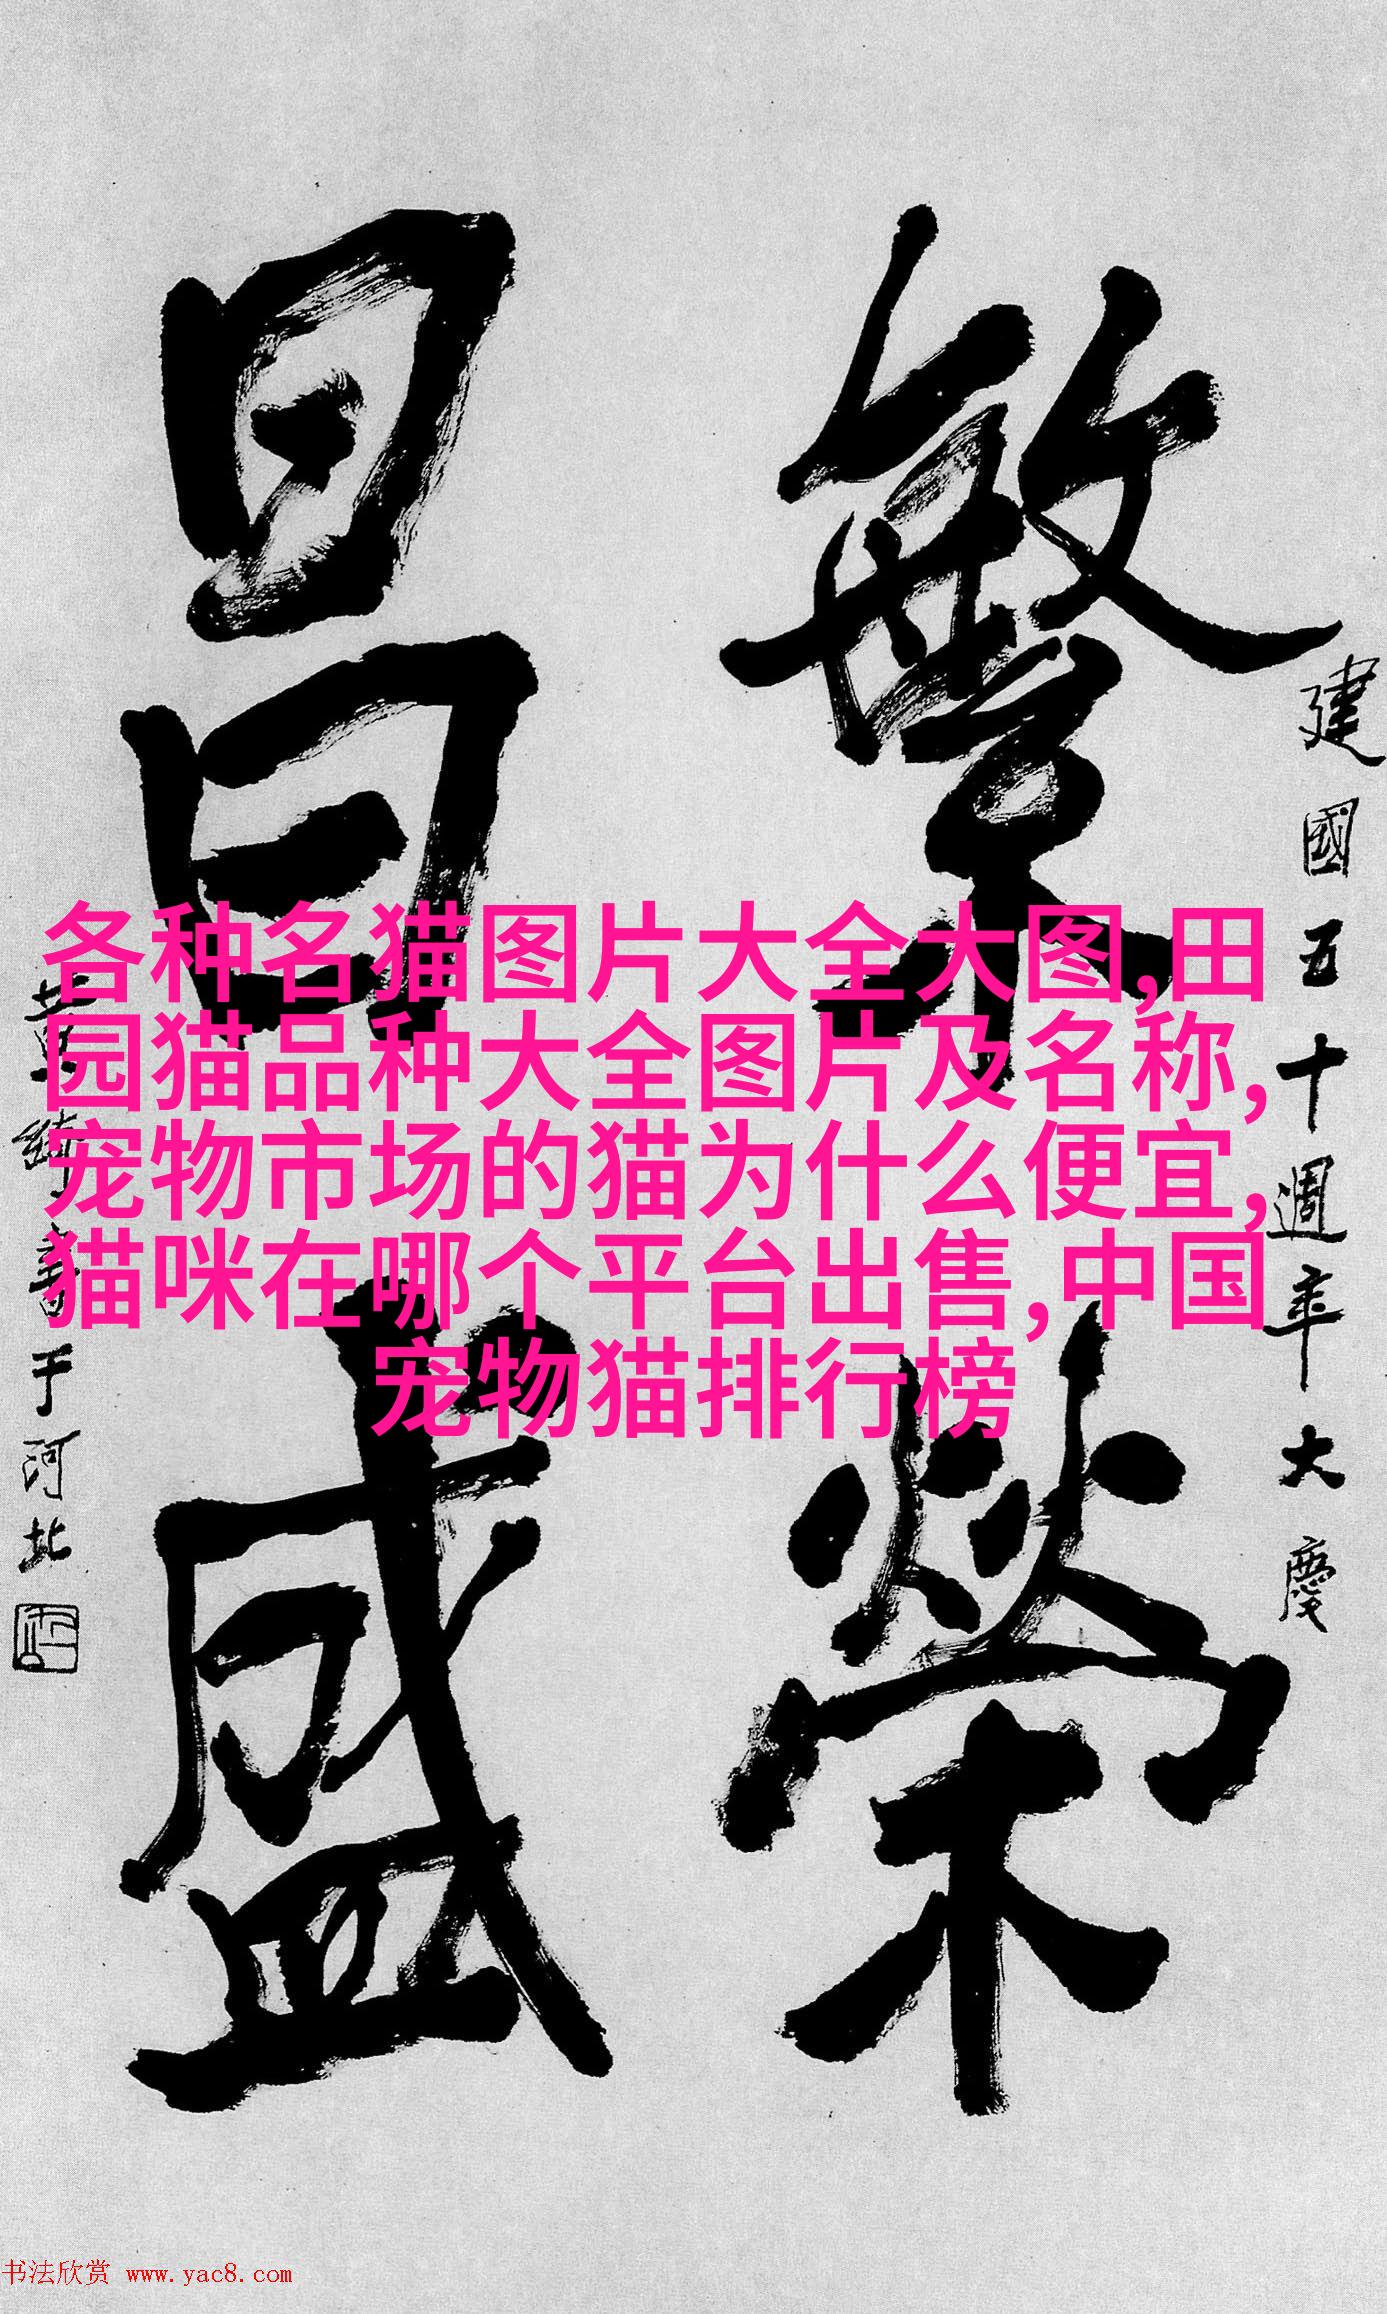 建國五十週年大慶
繁榮
昌盛
黄綺書于河北
各种名猫图片大全大图,田
园猫品种大全图片及名称,
宠物市场的猫为什么便宜,
猫咪在哪个平台出售,中国
宠物猫排行榜
书法欣赏 www.yac8.com